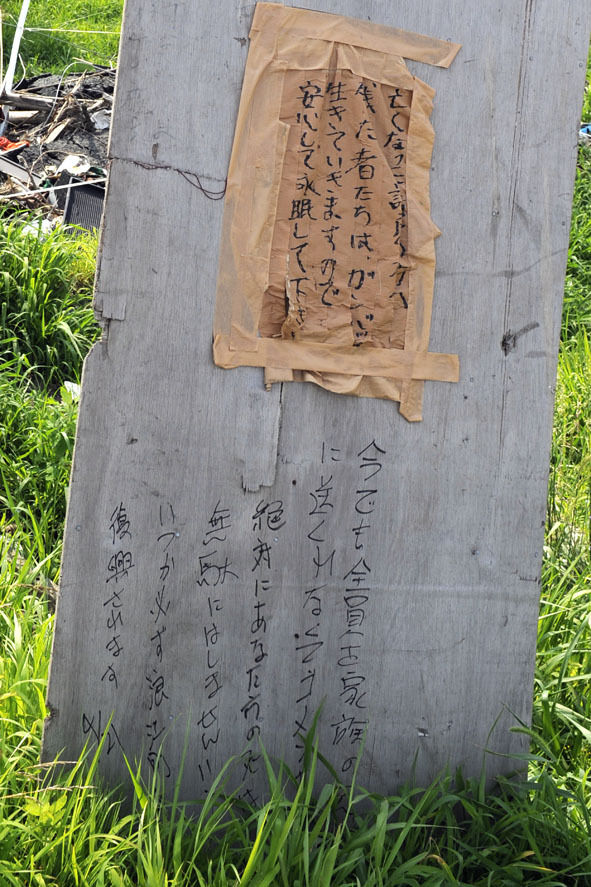 亡くなった諸氏の方へ
残った者たちは、ガンバッ
生きていきますので
安心して永眠して下さい
今でも全員を家族の
に送れなくてゴメン
絶対にあなた方の死を
無駄にはしません!!
いつか必ず浪江町
復興されます